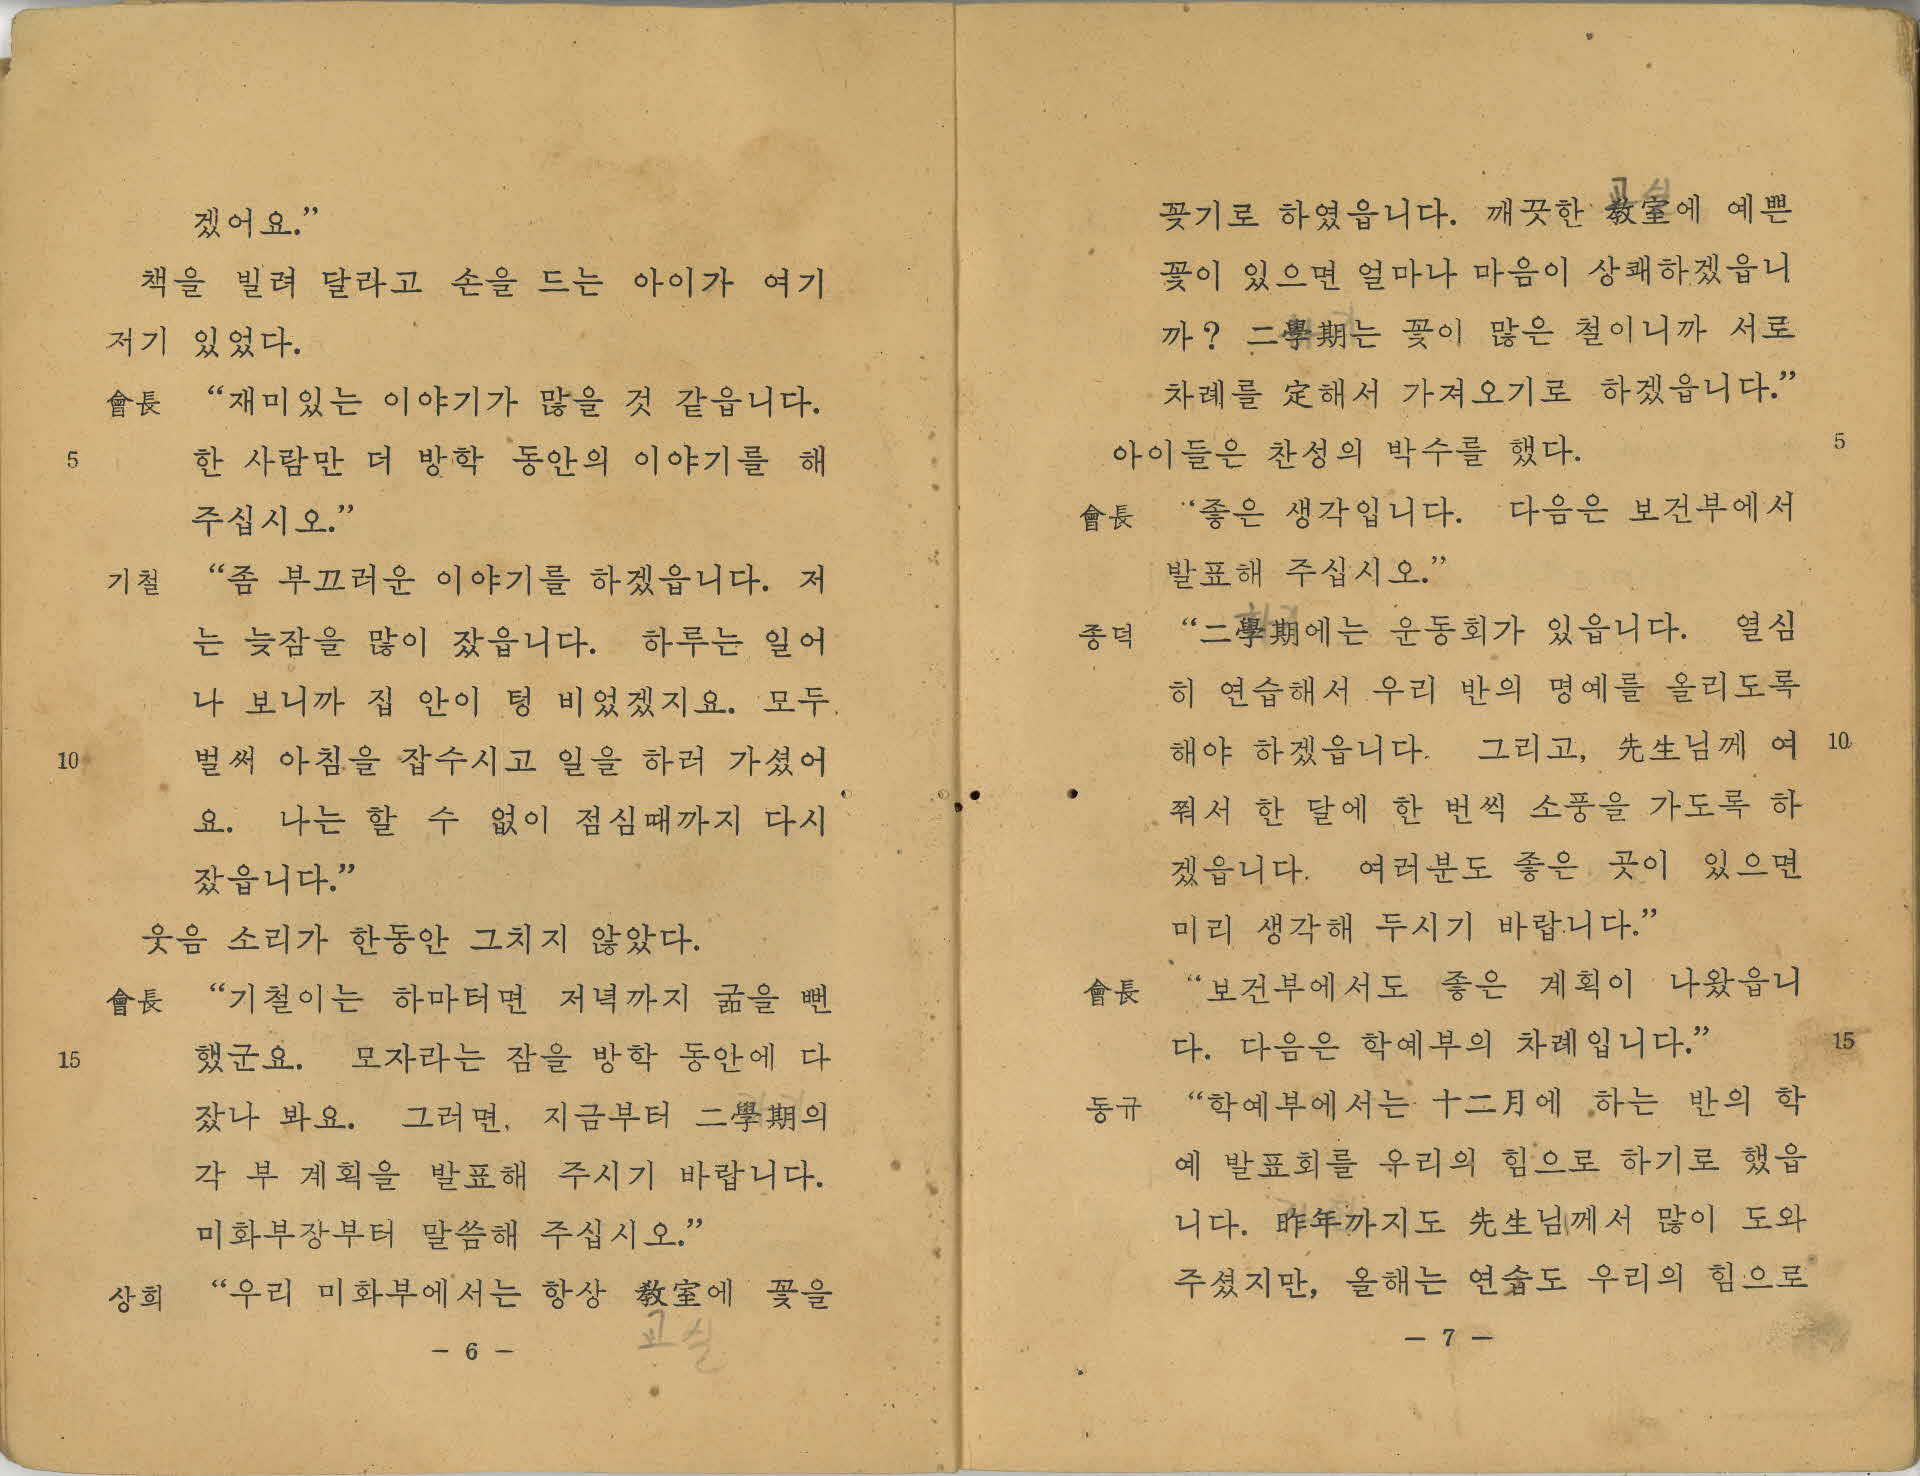 겠어요.”
책을 빌려 달라고 손을 드는 아이가 여기
저기 있었다.
會長 “재미있는 이야기가 많을 것 같읍니다.
5 한 사람만 더 방학 동안의 이야기를 해
주십시오.”
기철 “좀 부끄러운 이야기를 하겠읍니다. 저
는 늦잠을 많이 잤읍니다. 하루는 일어
나 보니까 집 안이 텅 비었겠지요. 모두
10 벌써 아침을 잡수시고 일을 하러 가셨어
요. 나는 할 수 없이 점심때까지 다시
잤읍니다.”
웃음 소리가 한동안 그치지 않았다.
會長 “기철이는 하마터면 저녁까지 굶을 뻔
15 했군요. 모자라는 잠을 방학 동안에 다
잤나 봐요. 그러면, 지금부터 二學期의
각 부 계획을 발표해 주시기 바랍니다.
미화부장부터 말씀해 주십시오.”
상희 “우리 미화부에서는 항상 敎室에 꽃을
교실
— 6 —
교실
꽂기로 하였읍니다. 깨끗한 敎室에 예쁜
꽃이 있으면 얼마나 마음이 상쾌하겠읍니
까? 二學期는 꽃이 많은 철이니까 서로
차례를 定해서 가져오기로 하겠읍니다.”
아이들은 찬성의 박수를 했다. 5
會長 “좋은 생각입니다. 다음은 보건부에서
발표해 주십시오.”
종덕 “二學期에는 운동회가 있읍니다. 열심
히 연습해서 우리 반의 명예를 올리도록
해야 하겠읍니다. 그리고, 先生님께 여 10
쭤서 한 달에 한 번씩 소풍을 가도록 하
겠읍니다. 여러분도 좋은 곳이 있으면
미리 생각해 두시기 바랍니다.”
會長 “보건부에서도 좋은 계획이 나왔읍니
다. 다음은 학예부의 차례입니다.” 15
동규 “학예부에서는 十二月에 하는 반의 학
예 발표회를 우리의 힘으로 하기로 했읍
니다. 昨年까지도 先生님께서 많이 도와
주셨지만, 올해는 연습도 우리의 힘으로
— 7 —